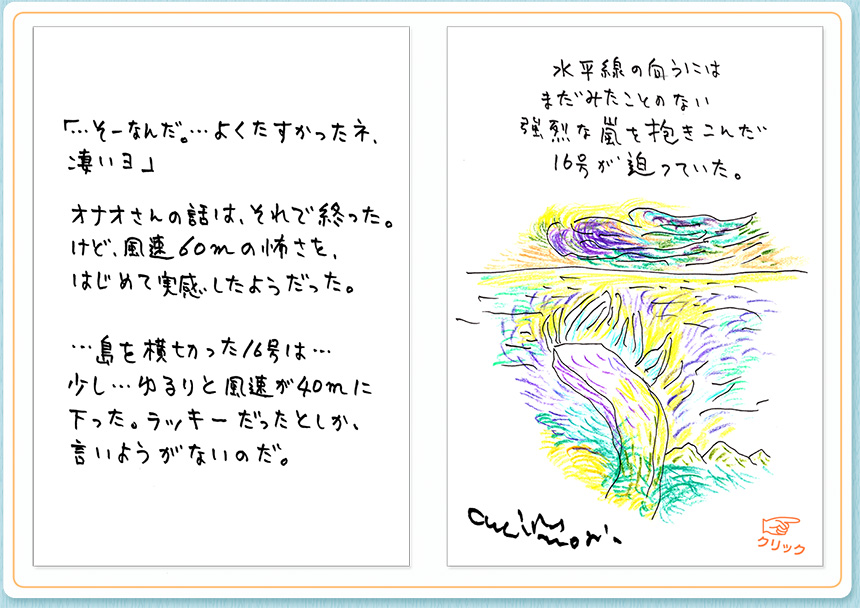 「…そーなんだ。…よくたすかったネ、
凄いヨ」
オナオさんの話は、それで終った。
けど、風速60mの怖さを、
はじめて実感したようだった。
…島を横切った16号は…
少し…ゆるりと風速が40mに
下った。ラッキーだったとしか、
言いようがないのだ。
水平線の向うには
まだみたことのない
強烈な嵐を抱きこんだ
16号が迫っていた。
クリック